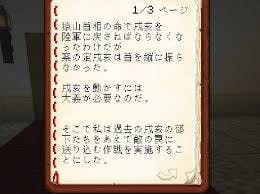 1/3 ページ
猿山首相の命で戌亥を
陸軍に戻さねばならなくな
ったわけだが
案の定戌亥は首を縦に振ら
なかった。
戌亥を動かすには
大義が必要なのだ。
そこで私は過去の戌亥の部
下たちをあえて敵の罠に
送り込む作戦を実施するこ
とにした。